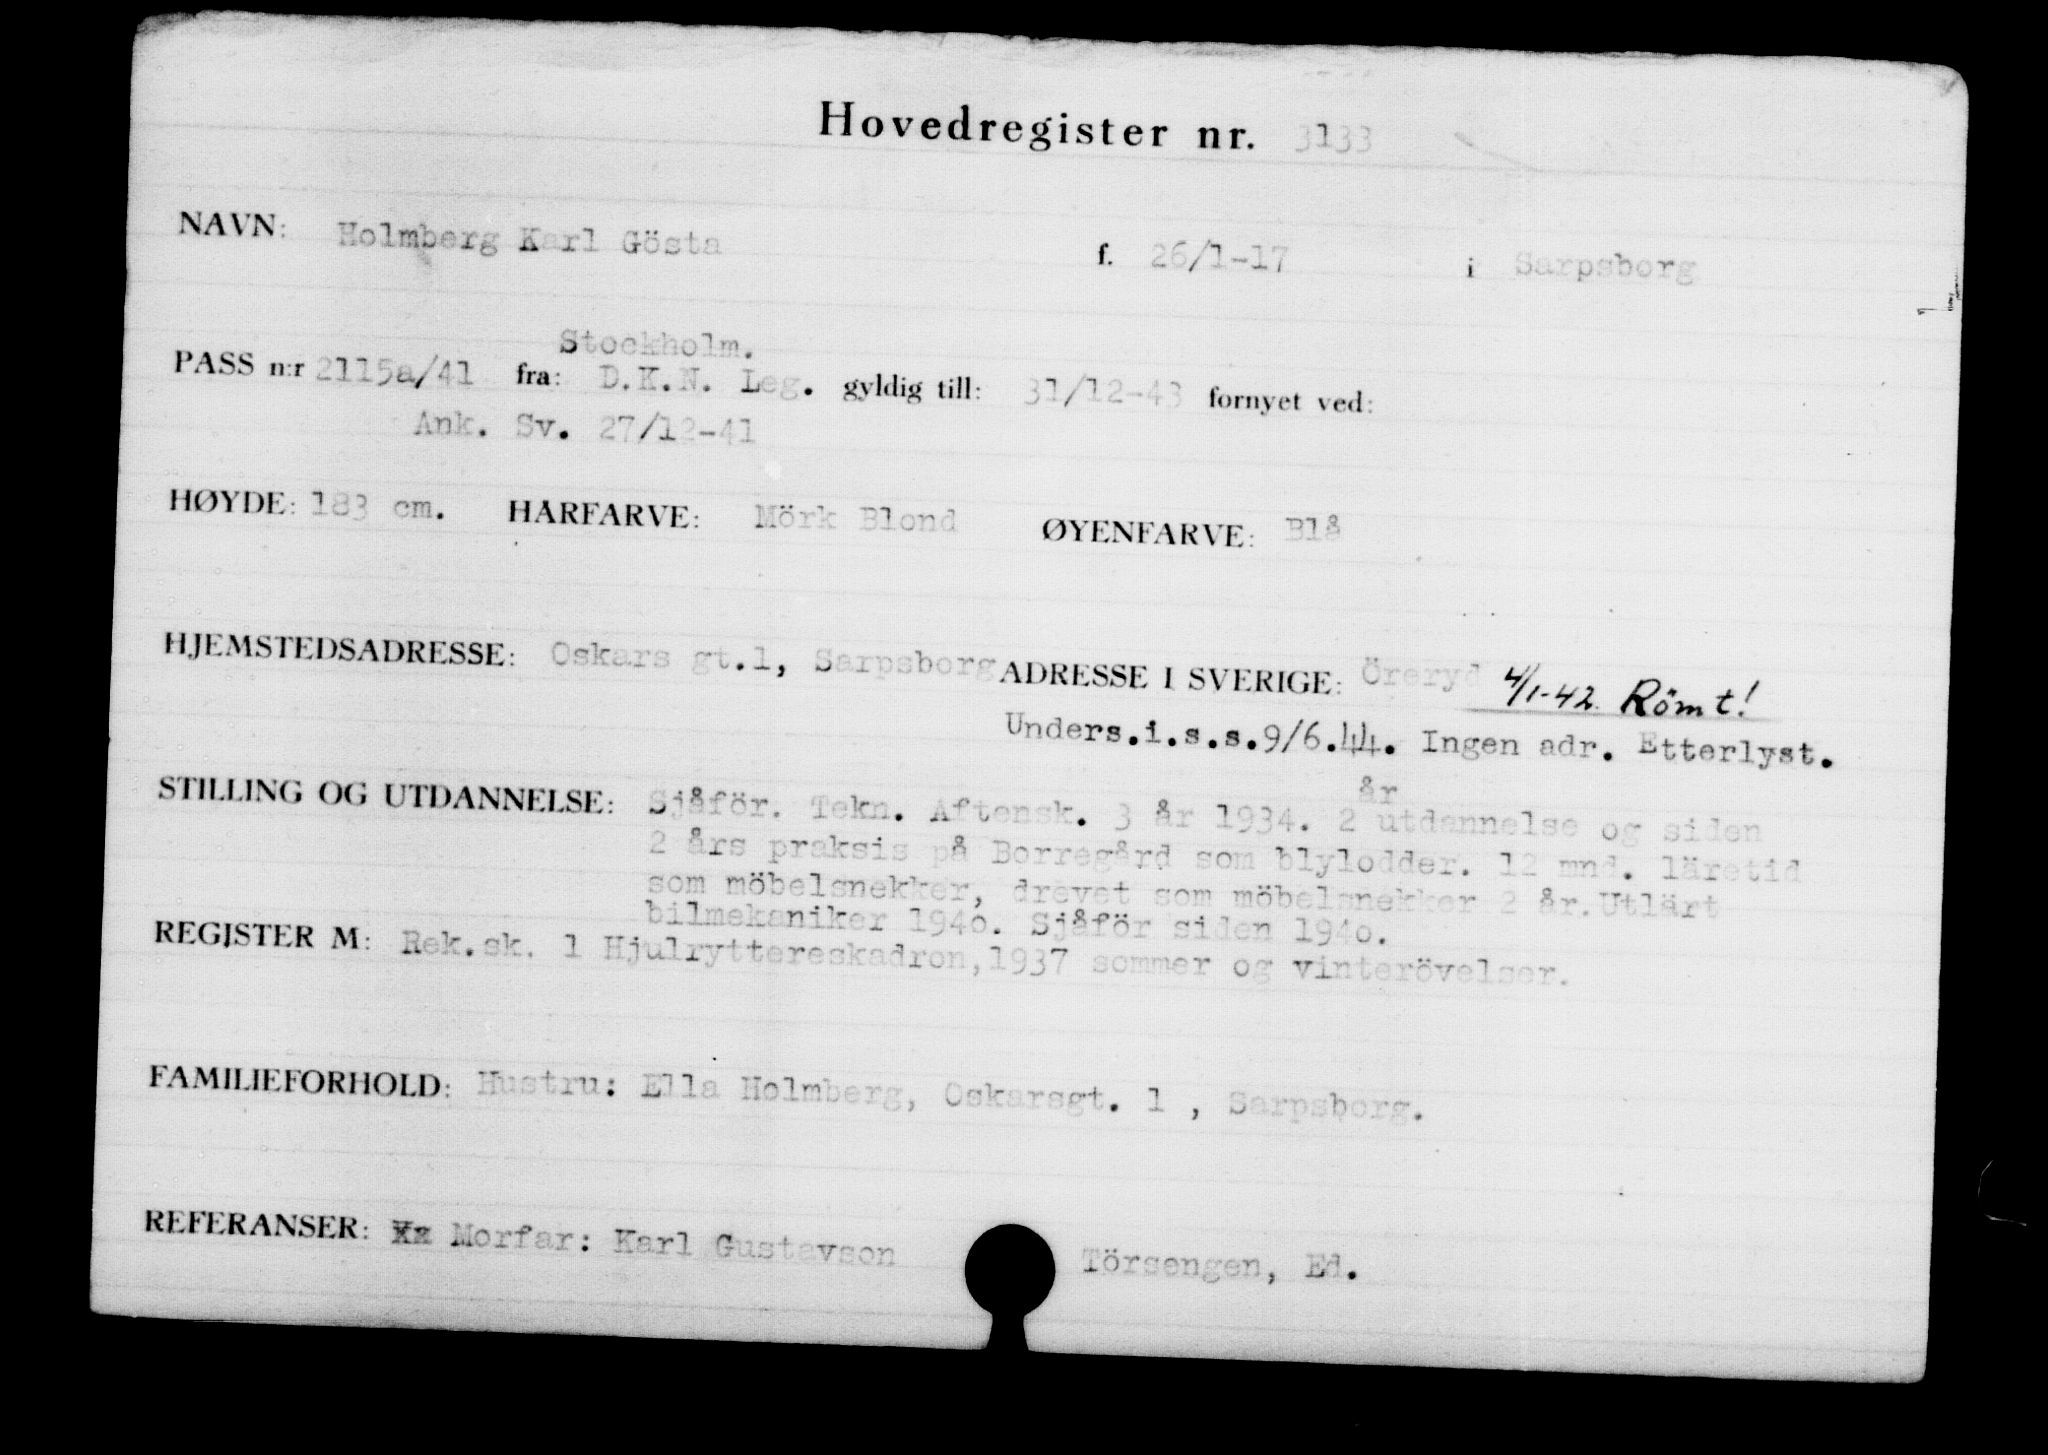 Hovedregister nr. 3133
NAVN: Holmberg Karl Gösta f. 26/1-17 i Sarpsborg
Stockholm.
PASS n:r 2115a/41 fra: D.K.N. Leg. gyldig till: 31/12-43 fornyet ved:
Ank. Sv. 27/12-41
HØYDE: 183 cm. HÅRFARVE: Mörk Blond ØYENFARVE: Blå
HJEMSTEDSADRESSE: Oskars gt.1, Sarpsborg ADRESSE I SVERIGE: Öreryd 4/1-42. Römt!
Unders.i.s.s.9/6.44. Ingen adr. Etterlyst.
år
STILLING OG UTDANNELSE: Sjåför. Tekn. Aftensk. 3 år 1934. 2 utdannelse og siden
2 års praksis på Borregård som blylodder. 12 mnd. läretid
som möbelsnekker, drevet som möbelsnekker 2 år. Utlärt
bilmekaniker 194o. Sjåför siden 194o.
REGISTER M: Rek.sk. 1 Hjulryttereskadron,1937 sommer og vinterövelser.
FAMILIEFORHOLD: Hustru: Ella Holmberg, Oskarsgt. 1 , Sarpsborg.
REFERANSER: Morfar: Karl Gustavson Törsengen, Ed.